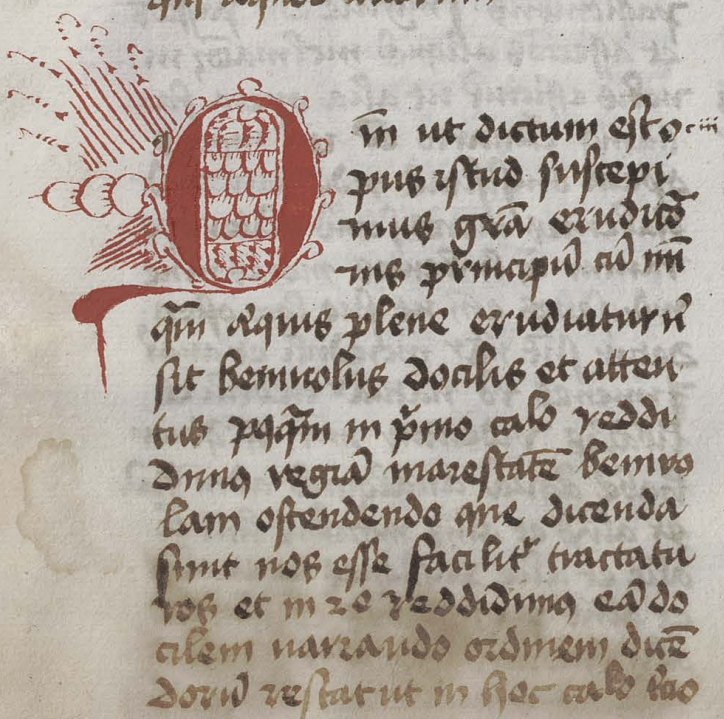 Qm̄ ut dictum est o
c iii
pus istud suscepi
mus gr̄a erudicō
nis principiū cū nū
q̄m aliquis plene erudiatur n̄
sit benivolus docilis et atten
tus pꝰqm̄ in p̄mo calo reddi
dimꝰ regiā maiestatē benivo
lam ostendendo que dicenda
sunt nos esse facilit̄ tractatu
ros et in 2ͦ reddidimꝰ eā do
cilem narrando ordinem dicē
dorū restat ut in hoc calo t̄cio